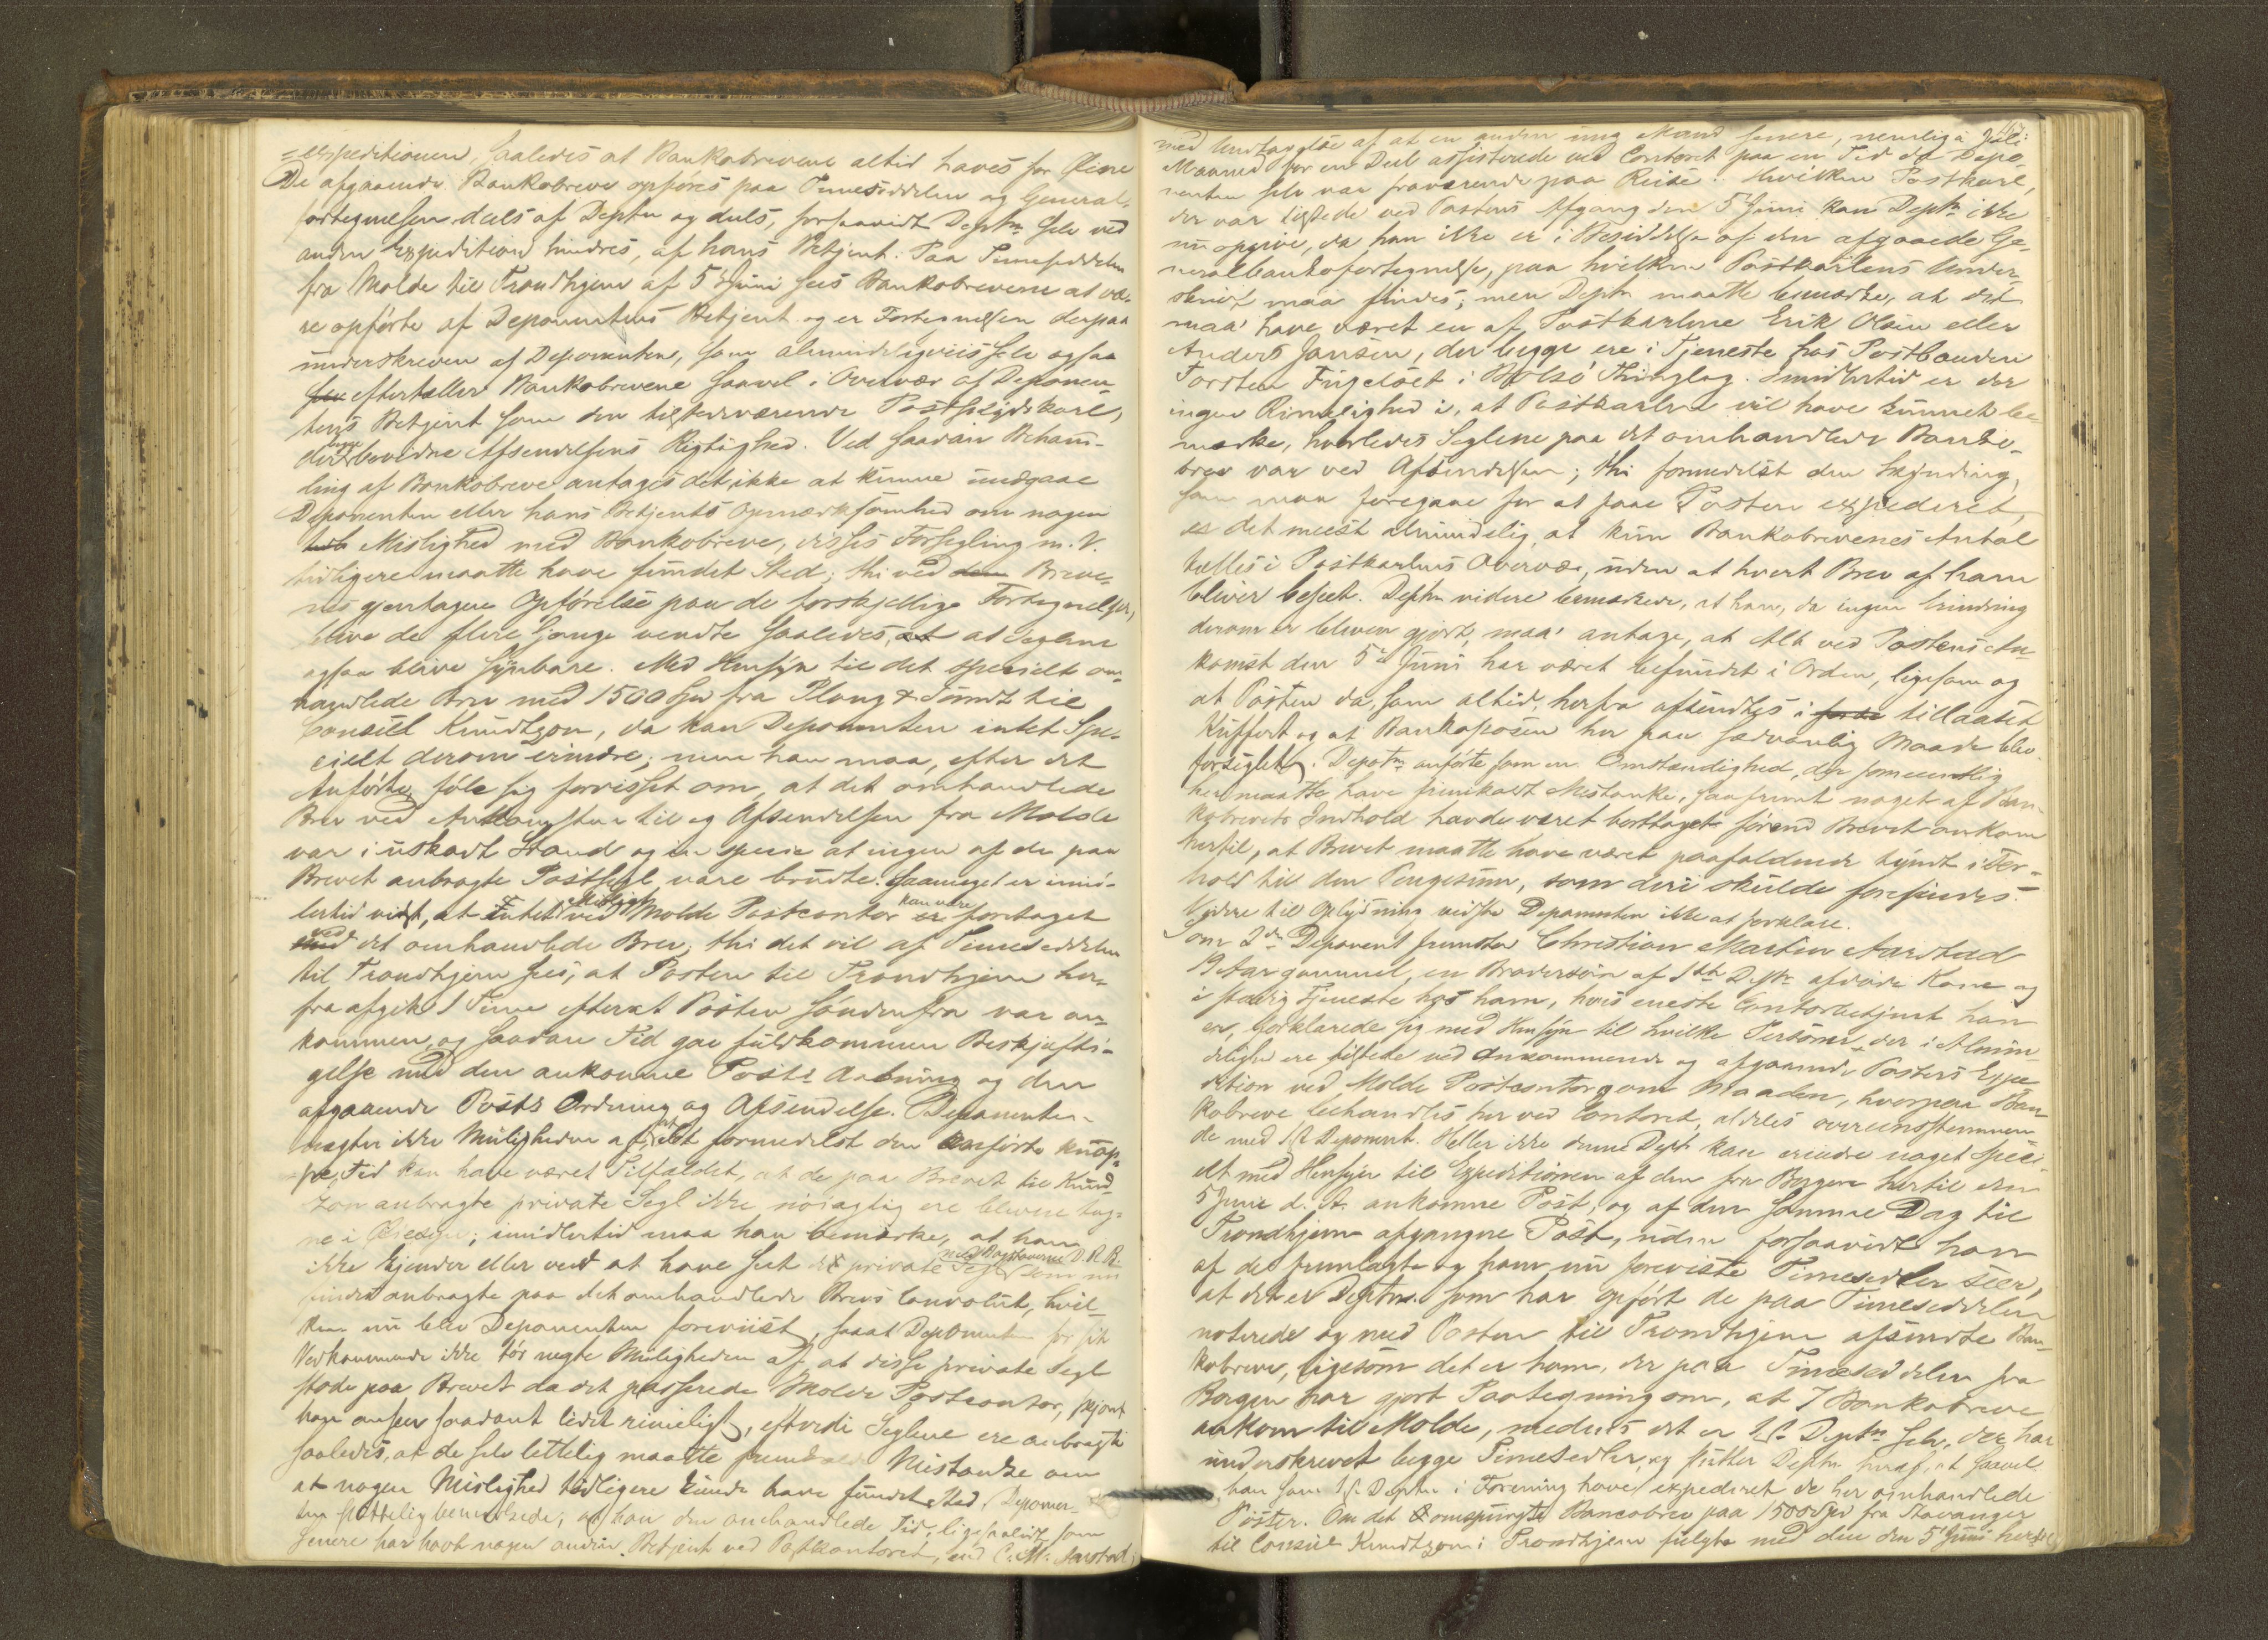 =expeditionen, saaledes at Bankobrevene altid haves for Øine
De afgaaende Bankobreve opføres paa Timeseddelen og General-
fortegnelsen deels af Deptn og deels, forsaavidt Deptn selv ved
anden Expedition hindres, af hans Betjent. Paa Timeseddelen
fra Molde til Trondhjem af 5te Juni sees Bankobrevene at væ-
re opførte af Deponentens Betjent og er Fortegnelsen derpaa
underskreven af Deponenten, som almindeligviis selv ogsaa
selv eftertæller Bankobrevene saavel i Overvær af Deponen-
tens Betjent som den tilstedeværende Postskydskarl,
der bevidne Afsendelsens Rigtighed. Ved saadan Behand-
ling af Bankobreve antages det ikke at kunne undgaae
Deponenten eller hans Betjents Opmærksomhed om nogen
Mislighed med Bankobreve, disses Forsegling m. V.
tidligere maatte have fundet Sted; thi ved dem Breve-
nes gjentagne Opførelse paa de forskjellige Fortegnelser,
blive de flere Gange vendte saaledes, at at Seglene
ogsaa blive synbare. Med Hensyn til det specielt om-
handlede Brev med 1500 Spd fra Ploug & Sundt til
Consul Knudtzon, da kan Deponenten intet Spe-
cielt derom erindre; men han maa, efter det
Anførte, føle sig forvisset om, at det omhandlede
Brev ved Ankomsten til og Afsendelsen fra Molde
var i uskadt Stand og in specie at ingen af de paa
Brevet anbragte Postsegl vare brudte. Saameget er imid-
lertid vist, at Intet Misligt ved Molde Postcontor er kan være foretaget
med ved det omhandlede Brev, thi det vil af Timeseddelen
til Trondhjem sees, at Posten til Trondhjem her-
fra afgik 1 Time efterat Posten søndenfra var an-
kommen, og saadan Tid gav fuldkommen Beskjæfti-
gelse med den ankomne Posts Aabning og den
afgaaende Posts Ordning og Afsendelse. Deponenten
nægter ikke Muligheden af, at det formedelst den anførte knap-
pe Tid kan have været Tilfældet, at de paa Brevet til Knud-
zon anbragte private Segl ikke nøiagtig ere blevne tag-
ne i Øiesyn; imidlertid maa han bemærke, at han
ikke kjender eller veed at have seet det private Segl med Bogstaverne D. R. B. som nu
findes anbragte paa det omhandlede Brevs Convolut, hvil-
ken nu blev Deponenten foreviist, saaat Deponenten for sit
Vedkommende ikke tør negte Muligheden af, at disse private Segl
stode paa Brevet da det passerede Molde Postcontor, skjønt
han anseer saadant lidet rimeligt, efterdi Seglene ere anbragte
saaledes, at de selv lettelig maatte fremkalde Mistanke om
at nogen Mislighed tidligere kunde have fundet Sted. Deponen-
ten sluttelig bemærkede, at han den omhandlede Tid, ligesaalidt som
senere har havt nogen anden Betjent ved Postkontoret, end C. M. Aarstad,
med Undtagelse af at en anden ung Mand senere, nemlig i Juli
Maaned for en Deel assisterede ved Contoret paa en Tid da Depo-
nenten selv var fraværende paa Reise. Hvilken Postkarl,
der var tilstede ved Postens Afgang den 5te Juni kan Deptn ikke
nu opgive, da han ikke er i Besiddelse af den afgaaede Ge-
neralbankofortegnelse, paa hvilken Postkarlens Under-
skrivt maa findes; men Deptn maatte bemærke, at det
maa have været en af Postkarlene Erik Olsen eller
Anders Jansen, der begge ere i Tjeneste hos Postbonden
Torsten Fugelset i Bolsø Thinglag. Imidlertid er der
ingen Rimelighed i, at Postkarlene vil have kunnet be-
mærke, hvorledes Seglene paa det omhandlede Banko-
brev var ved Afsendelsen; thi formedelst den Skynding,
som maa foregaae for at faae Posten expederet,
er det meest almindelig, at kun Bankobrevenes Antal
tælles i Postkarlens Overvær, uden at hvert Brev af ham
bliver beseet. Deptn videre bemærkede, at han, da ingen Erindring
derom er bleven gjort, maa antage, at Alt ved Postens An-
komst den 5te Juni har været befundet i Orden, ligesom og
at Posten da, som altid, herfra afsendtes i tillaaset
Kuffert og at Bankoposen her paa sædvanlig Maade blev
forseglet. Deptn anførte som en Omstændighed, der formeentlig
her maatte have fremkaldt Mistanke, saafremt noget af Ban-
kobrevets Indhold havde været borttaget førend Brevet ankom
hertil, at Brevet maatte have været paafaldende tyndt i For-
hold til den Pengesum, som deri skulde forefindes.
Videre til Oplysning vidste Deponenten ikke at forklare.
Som 2den Deponent fremstod Christian Martin Aarstad
19 Aar gammel, en Brodersøn af 1ste Deptn afdøde Kone og
i stadig Tjeneste hos ham, hvis eneste Contorbetjent han
er, forklarede sig med Hensyn til hvilke Personer, der i Almin-
delighed ere tilstede ved ankommende og afgaaende Posters Expe-
dition ved Molde Postcontor og om Maaden, hvorpaa Ban-
kobreve behandles her ved Contoret, aldeles overeensstemmen-
de med 1ste Deponent. Heller ikke denne Deptn kan erindre noget Speci-
elt med Hensyn til Expeditionen af den fra Bergen hertil den
5 Juni d. A. ankomne Post, og af den samme Dag til
Trondhjem afgangne Post, uden forsaavidt han
af de fremlagte og ham nu foreviste Timesedler seer,
at det er Deptn. som har opført de paa Timeseddelen
noterede og med Posten til Trondhjem afsendte Ban-
kobreve, ligesom det er ham, der paa Timeseddelen fra
Bergen har gjort Paategning om, at 7 Bankobreve
ankom til Molde, medens det er 1ste Deptn selv, der har
underskrevet begge Timesedler, og slutter Deptn heraf, at saavel
han som 1ste Deptn i Forening have expederet de her omhandlede
Poster. Om det omspurgte Bancobrev paa 1500 Spd fra Stavanger
til Consul Knudtzon i Trondhjem fulgte med den den 5te Juni hertil